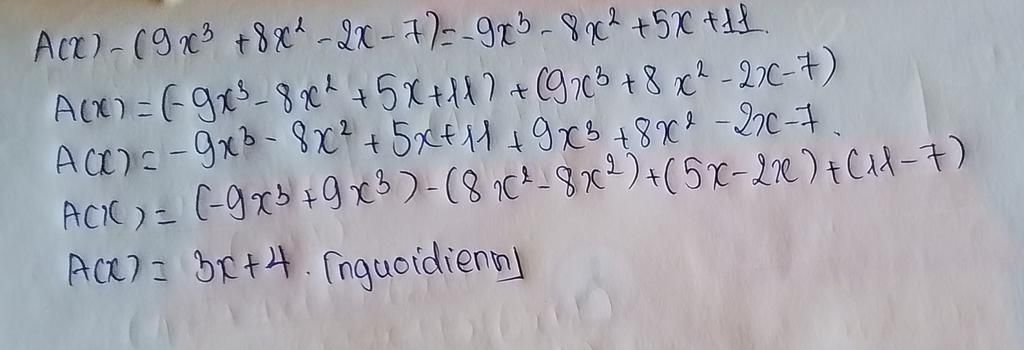 A(x) - (9x³ + 8x² - 2x - 7) = -9x³ - 8x² + 5x + 11.
A(x) = (-9x³ - 8x² + 5x + 11) + (9x³ + 8x² - 2x - 7)
A(x) = -9x³ - 8x² + 5x + 11 + 9x³ + 8x² - 2x - 7.
A(x) = (-9x³ + 9x³) - (8x² - 8x²) + (5x - 2x) + (11 - 7)
A(x) = 3x + 4. [nguoidienn]